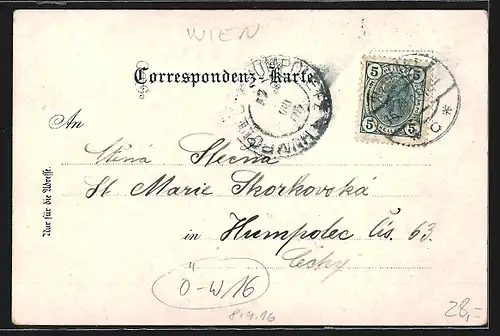 WIEN
Correspondenz-Karte
HUMPOLETZ
HUMPOLEC
5 5
5 5
An
Slečna
Marie Skorkovoká
in Humpolec čís. 63.
Čechy
Nur für die Adresse.
Ö-W16
8.4.16
28,=